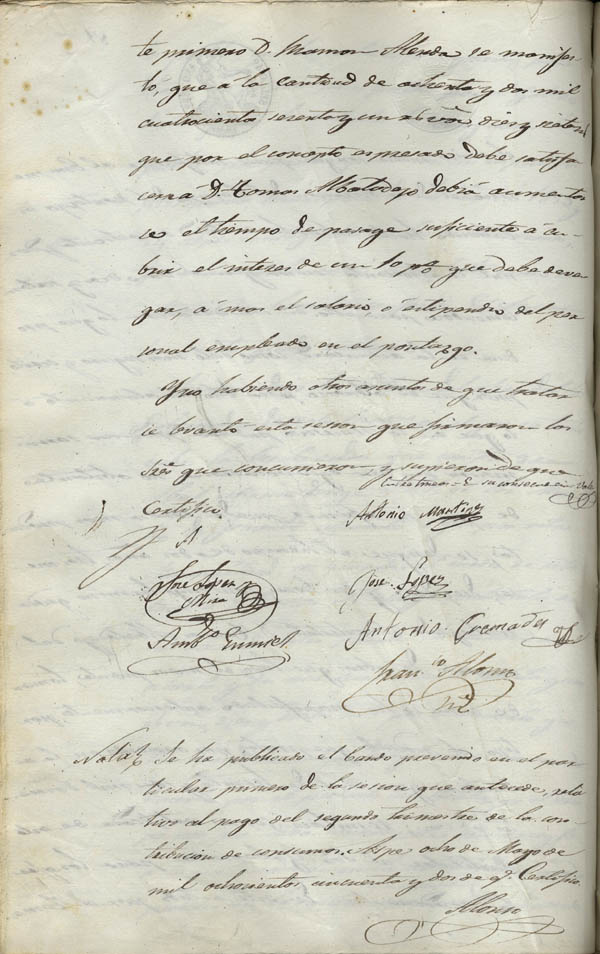 te primero D. Ramon Merda se manifes-
tó, que á la cantidad de ochenta y dos mil
cuatrocientos sesenta y un r.s v.on diez y siete m.s
que por el concepto espresado debe satisfa-
cerse á D. Tomas debia aumentar
se el tiempo de pasage suficiente á cu-
brir el interes de un 10 p% que debe deven-
gar, á mas el salario, o estipendio del per-
sonal empleado en el portazgo.
Y no habiendo otros asuntos de que tratar
se levantó esta sesion que firmaron los
Sres que concurrieron, y supieron de que
Certifico.
Antonio Martinez
Jose Lopez
Jose Lopez
Antonio Cremades
Amb.o
Fran.co Alonso
Nota Se ha publicado el bando prevenido en el par-
ticular primero de la sesion que antecede, rela-
tivo al pago del segundo trimestre de la con-
tribucion de consumos. Aspe ocho de Mayo de
mil ochocientos cincuenta y dos de q.e Certifico.
Alonso